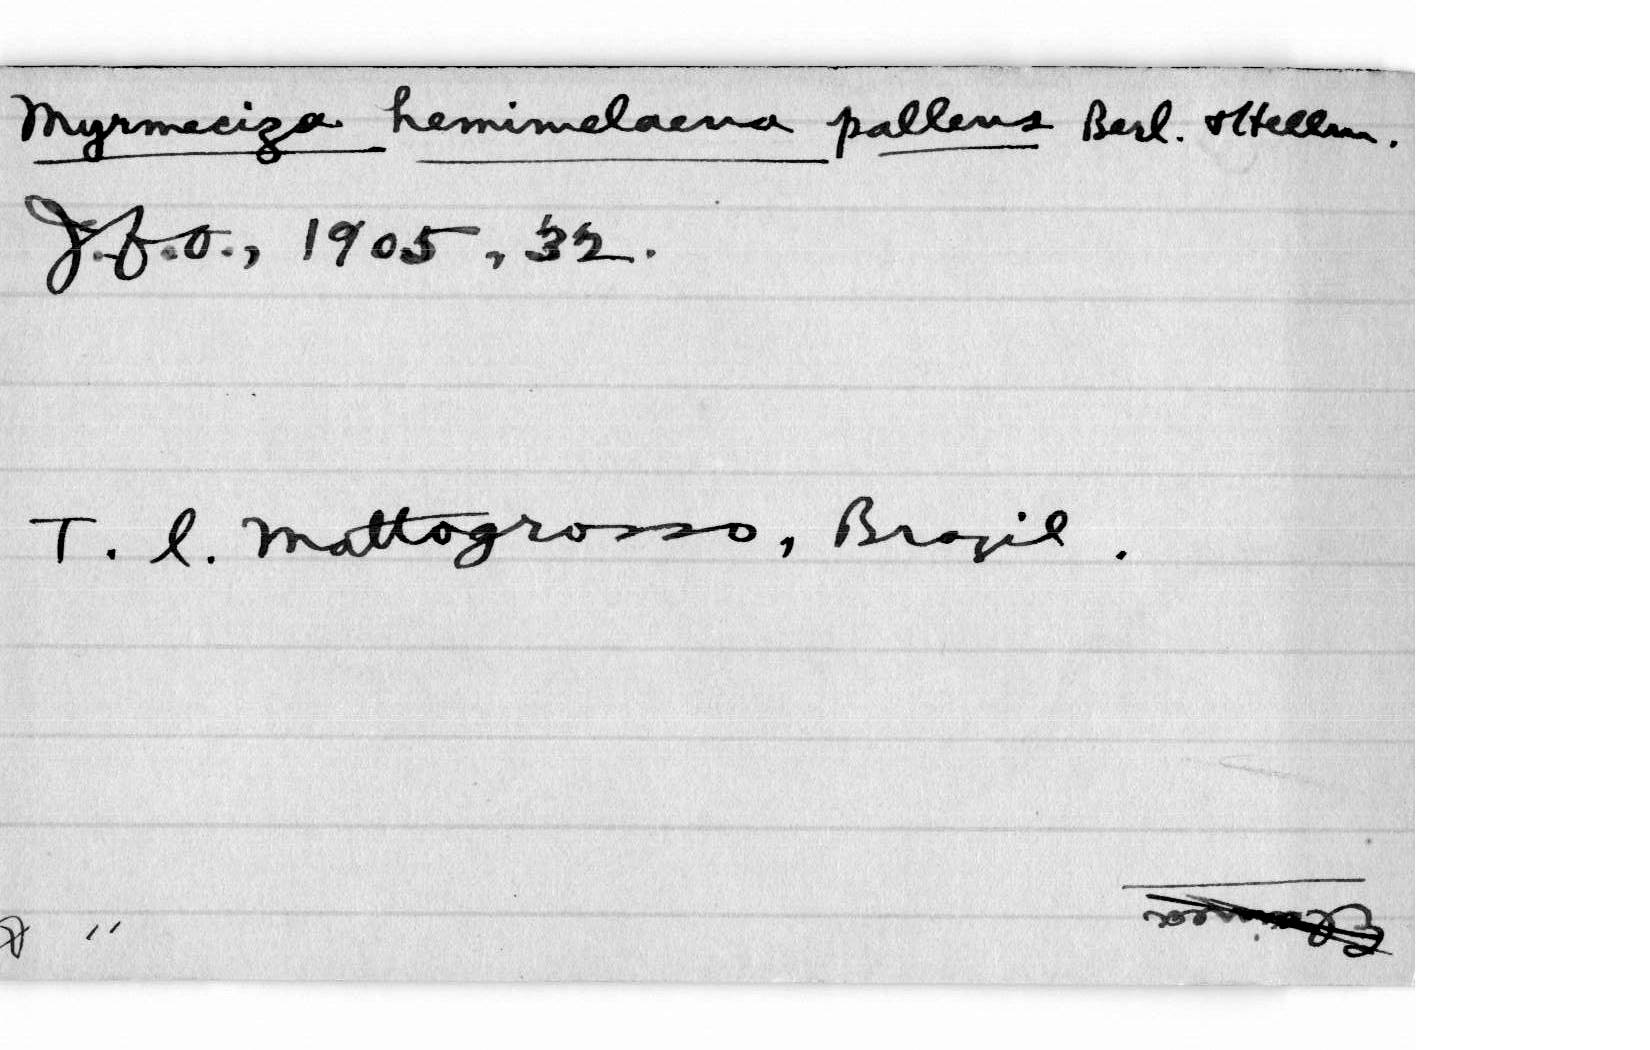 Myrmeciza hemimelaena pallens Berl. & Hellm.
J.f.O., 1905, 32.
T. l. Mattogrosso, Brazil.
"